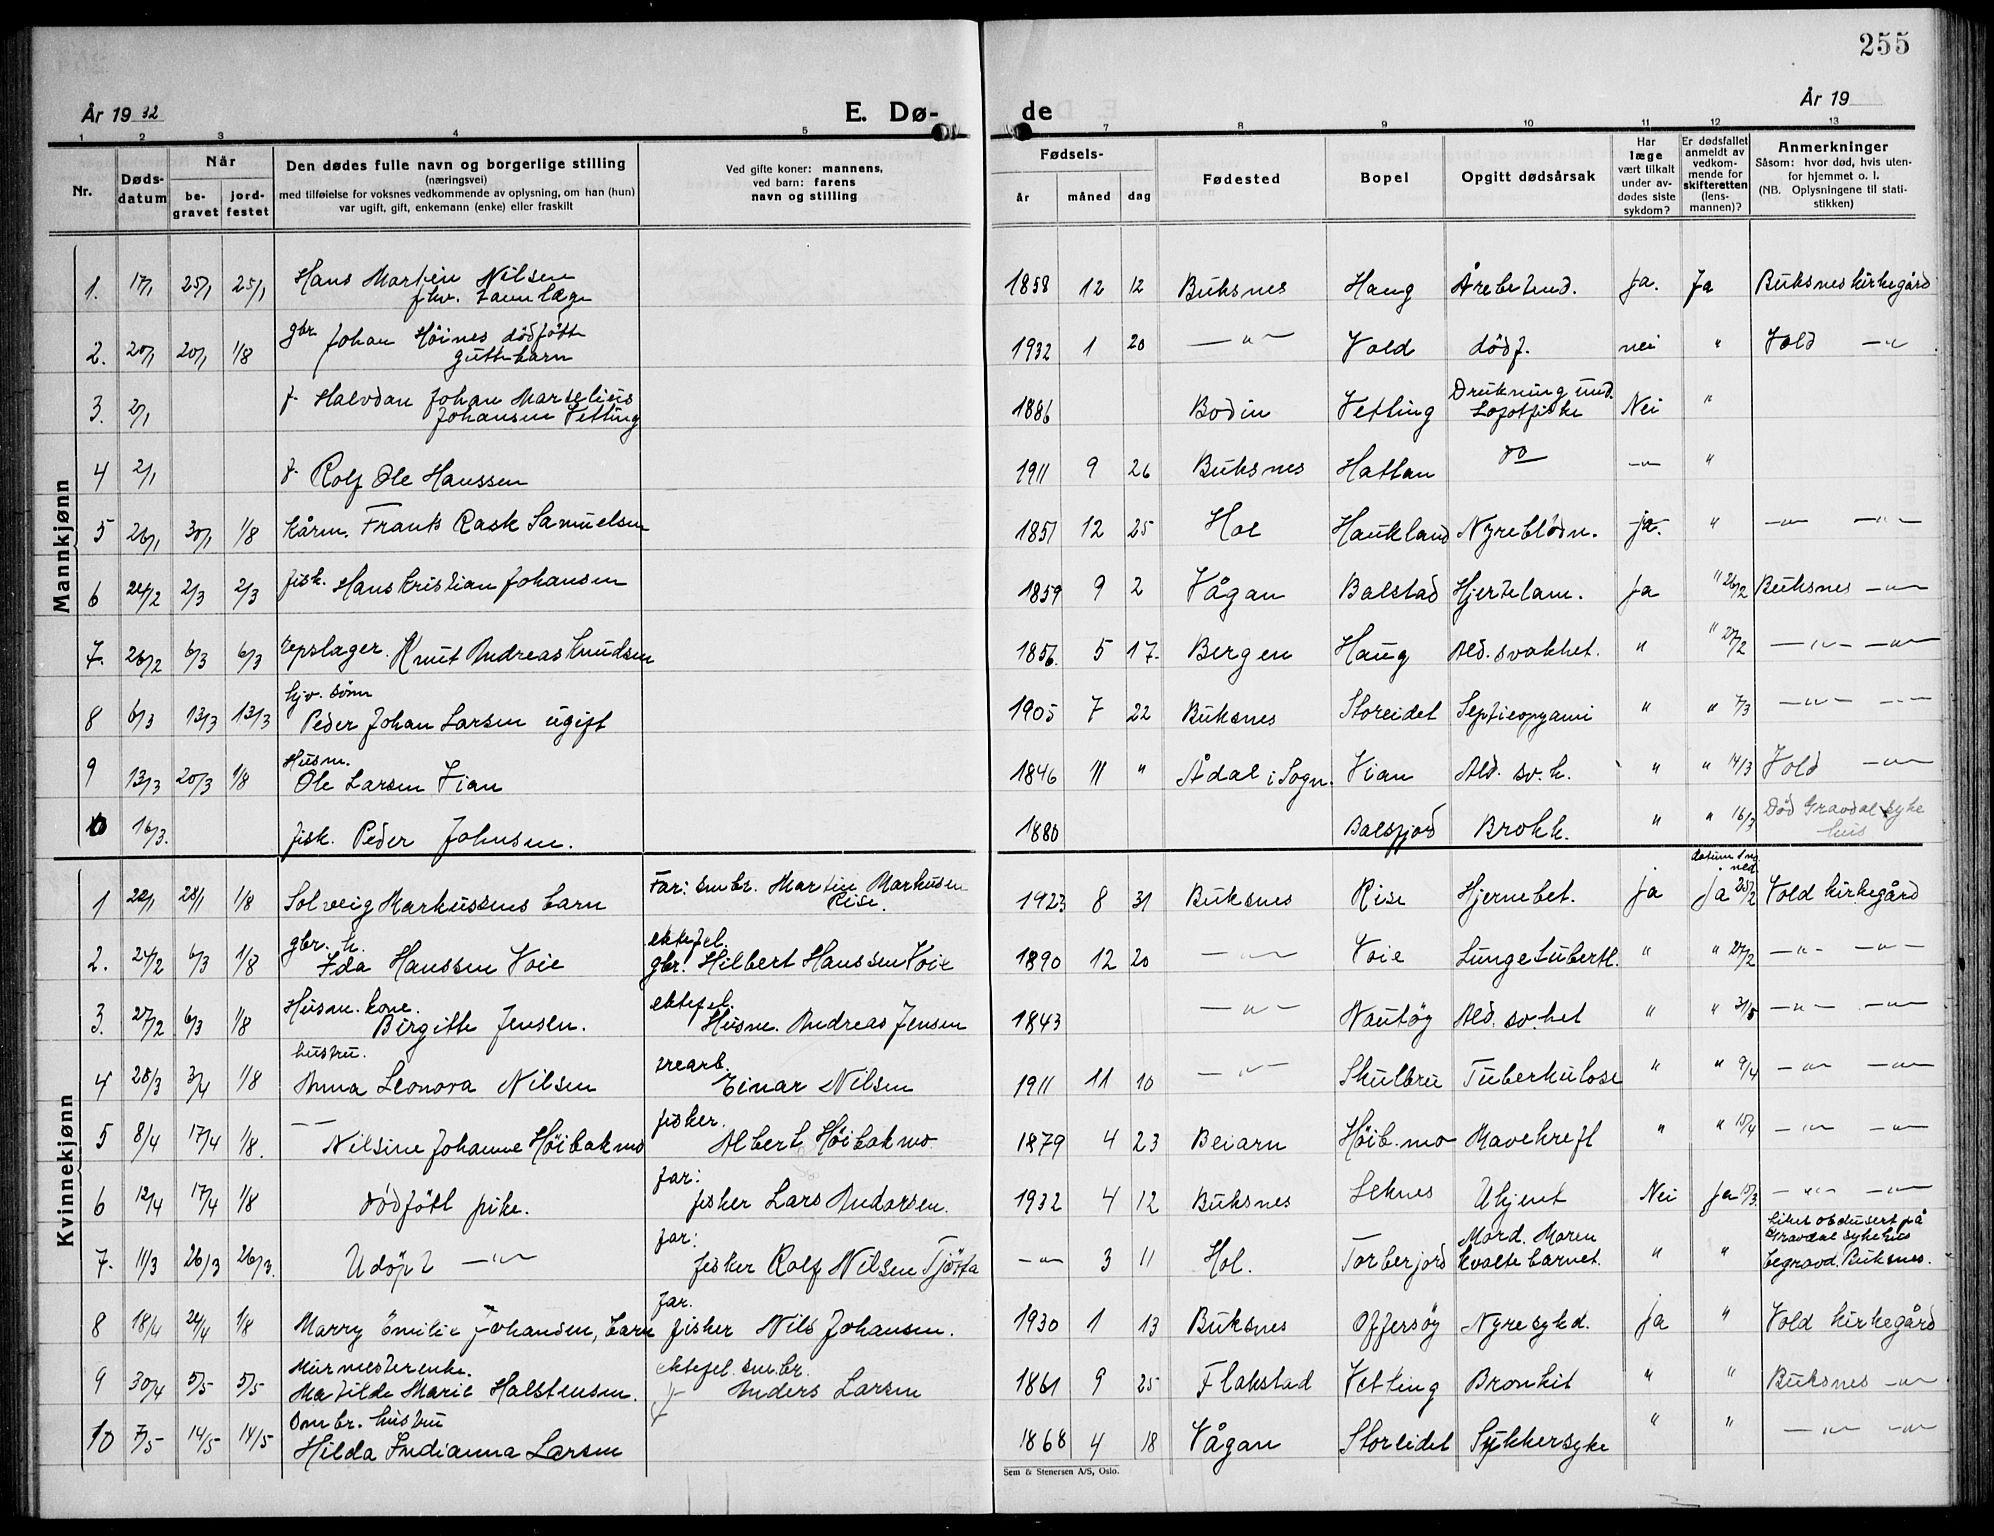 255
År 1932
E. Dø-
de
År 19
1 2 3 4 5 7 8 9 10 11 12 13
Nr.
Døds-
datum
Når
be-
gravet
jord-
festet
Den dødes fulle navn og borgerlige stilling
(næringsvei)
med tilføielse for voksnes vedkommende av oplysning, om han (hun)
var ugift, gift, enkemann (enke) eller fraskilt
Ved gifte koner: mannens,
ved barn: farens
navn og stilling
Fødsels-
år måned dag
Fødested
Bopel
Opgitt dødsårsak
Har
læge
vært tilkalt
under av-
dødes siste
sykdom?
Er dødsfallet
anmeldt av
vedkom-
mende for
skifteretten
(lens-
mannen)?
Anmerkninger
Såsom: hvor død, hvis uten-
for hjemmet o. l.
(NB. Oplysningene til stati-
stikken)
Mannkjønn
1. 17/1 25/1 25/1 Hans Martin Nilsen
fhv. 1858 12 12 Buksnes Haug Ja. Ja Buksnes kirkegård
2. 20/1 20/1 1/8 gbr Johan Höines dödfött
guttebarn 1932 1 20 —"— Vold dödf. nei " Vold —"—
3. 2/1 f. Halvdan Johan Marselius
Johansen Vetting 1886 Bodin Vetting Drukning und.
Lofotfiske Nei "
4 2/1 f. Rolf Ole Hanssen 1911 9 26 Buksnes Hattan do —"— "
5 26/1 30/1 1/8 kårm. Frants Rask Samuelsen 1851 12 25 Hol Haukland Nyreblödn. ja. " —"— —"—
6 24/2 2/3 2/3 fisk. Hans Kristian Johansen 1859 9 2 Vågan Balstad Hjertelam. Ja " 26/2 Buksnes —"—
7. 26/2 6/3 6/3 repslager. Knut Andreas Knudsen 1856. 5 17. Bergen Haug Ald. svakhet. " " 27/2 —"— —"—
8 6/3 13/3 13/3 hjv. sönn
Peder Johan Larsen ugift 1905 7 22 Buksnes Storeidet Septicopyami " " 7/3 —"— —"—
9 13/3 20/3 1/8 Husm.
Ole Larsen Vian 1846 11 " Ådal i Sogn. Vian Ald. sv.h. " " 14/3 Vold —"—
10 16/3. fisk. Peder Johnsen. 1880 Balsfjord Brokk. " " 16/3 Död Gravdal syke
hus
Kvinnekjønn
1 22/1 28/1 1/8 Solveig Markussens barn Far: smbr. Martin Markusen
Rise. 1923 8 31 Buksnes Rise Hjernebet. ja Ja 25/2 Vold kirkegård
2. 24/2 6/3 1/8 gbr. h.
Ida Hanssen Voie ektefel.
gbr. Hilbert Hanssen Voie 1890 12 20 —"— Voie Lungetuberk. " " 27/2 —"— —"—
3. 27/2 6/3 1/8 Husm. kone.
Birgitte Jensen. ektefel.
Husm. Andreas Jensen 1843 —"— Nautöy Ald. sv.het " " 31/5 —"— —"—
4 28/3 3/4 1/8 hustru.
Anna Leonora Nilsen
Einar Nilsen 1911 11 10 —"— Skulbru Tuberkulose " " 9/4 —"— —"—
5 8/4 17/4 1/8. —"—
Nilsine Johanne Höibakmo fisker.
Albert Höibakmo 1879 4 23 Beiarn Höib.mo Mavekreft " " 15/4 —"— —"—
6 12/4 17/4 1/8 Dödfött pike. far:
fisker Lars Andorsen. 1932 4 12 Buksnes Leknes Ukjent Nei Ja 15/3. —"— —"—
7. 11/3 26/3 26/3. Udöpt —"— far:
fisker Rolf Nilsen Tjötta —"— 3 11 Hol. Torberjord Mord. Moren
kvalte barnet. " " Liket obdusert på
Gravdal sykehus
begravd. Buksnes.
8 18/4 24/4 1/8 Marry Emilie Johansen, barn far.
fisker Nils Johansen. 1930 1 13 Buksnes Offersöy Nyresykd. Ja " Vold kirkegård
9 30/4 5/5 5/5 Murmesterenke.
Matilde Marie Halstensen. ektefel. smbr.
Anders Larsen 1861 9 25 Flakstad Vetting Bronkit " " Buksnes —"—
10 7/5 14/5 14/5 Smbr. hustru
Hilda Indianna Larsen 1868 4 18 Vågan Storeidet Sukkersyke " " —"— —"—
Sem & Stenersen A/S, Oslo.